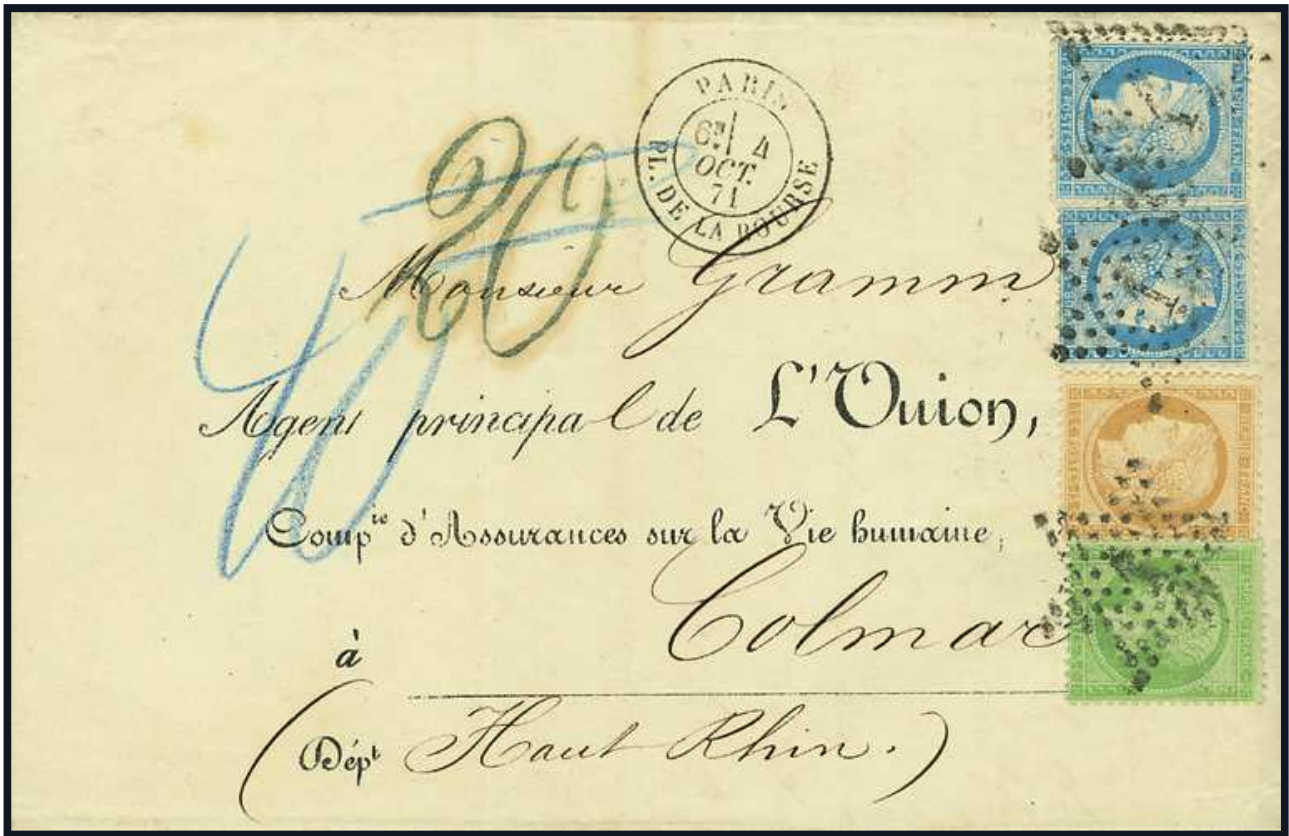 PARIS
6E 4
OCT.
71
PL. DE LA BOURSE
20
40
1
1
Monsieur Gramm
Agent principal de L'Union,
Compie d'Assurances sur la Vie humaine,
Colmar
à
(Dépt Haut Rhin.)